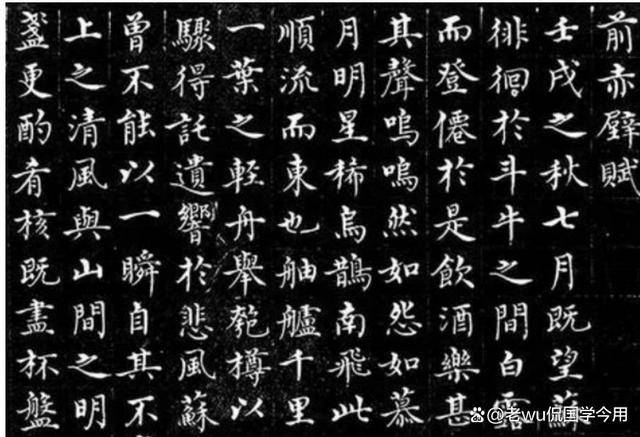 前赤壁賦
壬戌之秋七月既望蘇
徘徊於斗牛之間白露
而登僊於是飲酒樂甚
其聲嗚嗚然如怨如慕
月明星稀烏鵲南飛此
順流而東也舳艫千里
一葉之輕舟舉匏樽以
驟得託遺響於悲風蘇
曾不能以一瞬自其不
上之清風與山間之明
盞更酌肴核既盡杯盤
@老wu侃国学今用